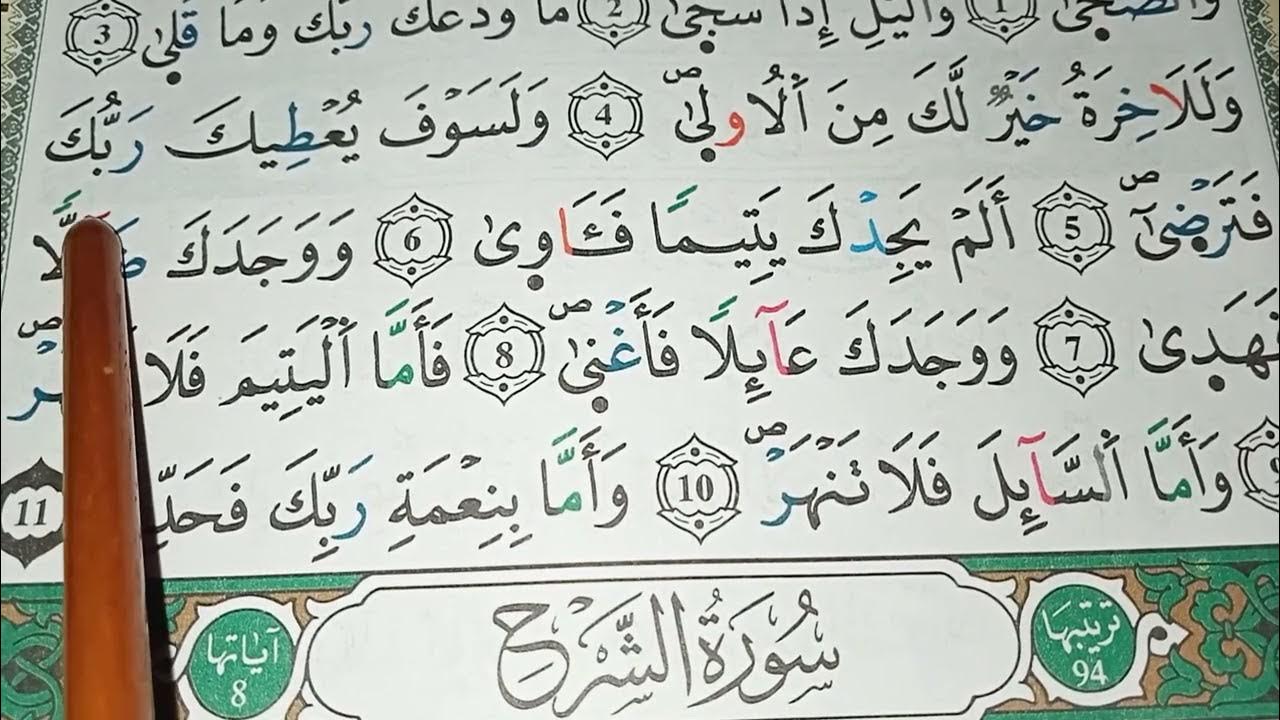 وَالضُّحَىٰ 1 وَالَّيْلِ إِذَا سَجَىٰ 2 مَا وَدَّعَكَ رَبُّكَ وَمَا قَلَىٰ 3
وَلَلَاخِرَةُ خَيْرٌ لَّكَ مِنَ ٱلُاولَىٰ ص 4 وَلَسَوْفَ يُعْطِيكَ رَبُّكَ
فَتَرْضَىٰٓ ص 5 أَلَمْ يَجِدْكَ يَتِيمًا فَـَٔاوَىٰ 6 وَوَجَدَكَ
فَهَدَىٰ 7 وَوَجَدَكَ عَآئِلًا فَأَغْنَىٰ ص 8 فَأَمَّا ٱلْيَتِيمَ فَلَا
9 وَأَمَّا ٱلسَّآئِلَ فَلَا تَنْهَرْ ص 10 وَأَمَّا بِنِعْمَةِ رَبِّكَ 11
ترتيبها 94 سُورَةُ الشَّرْحِ آياتها 8